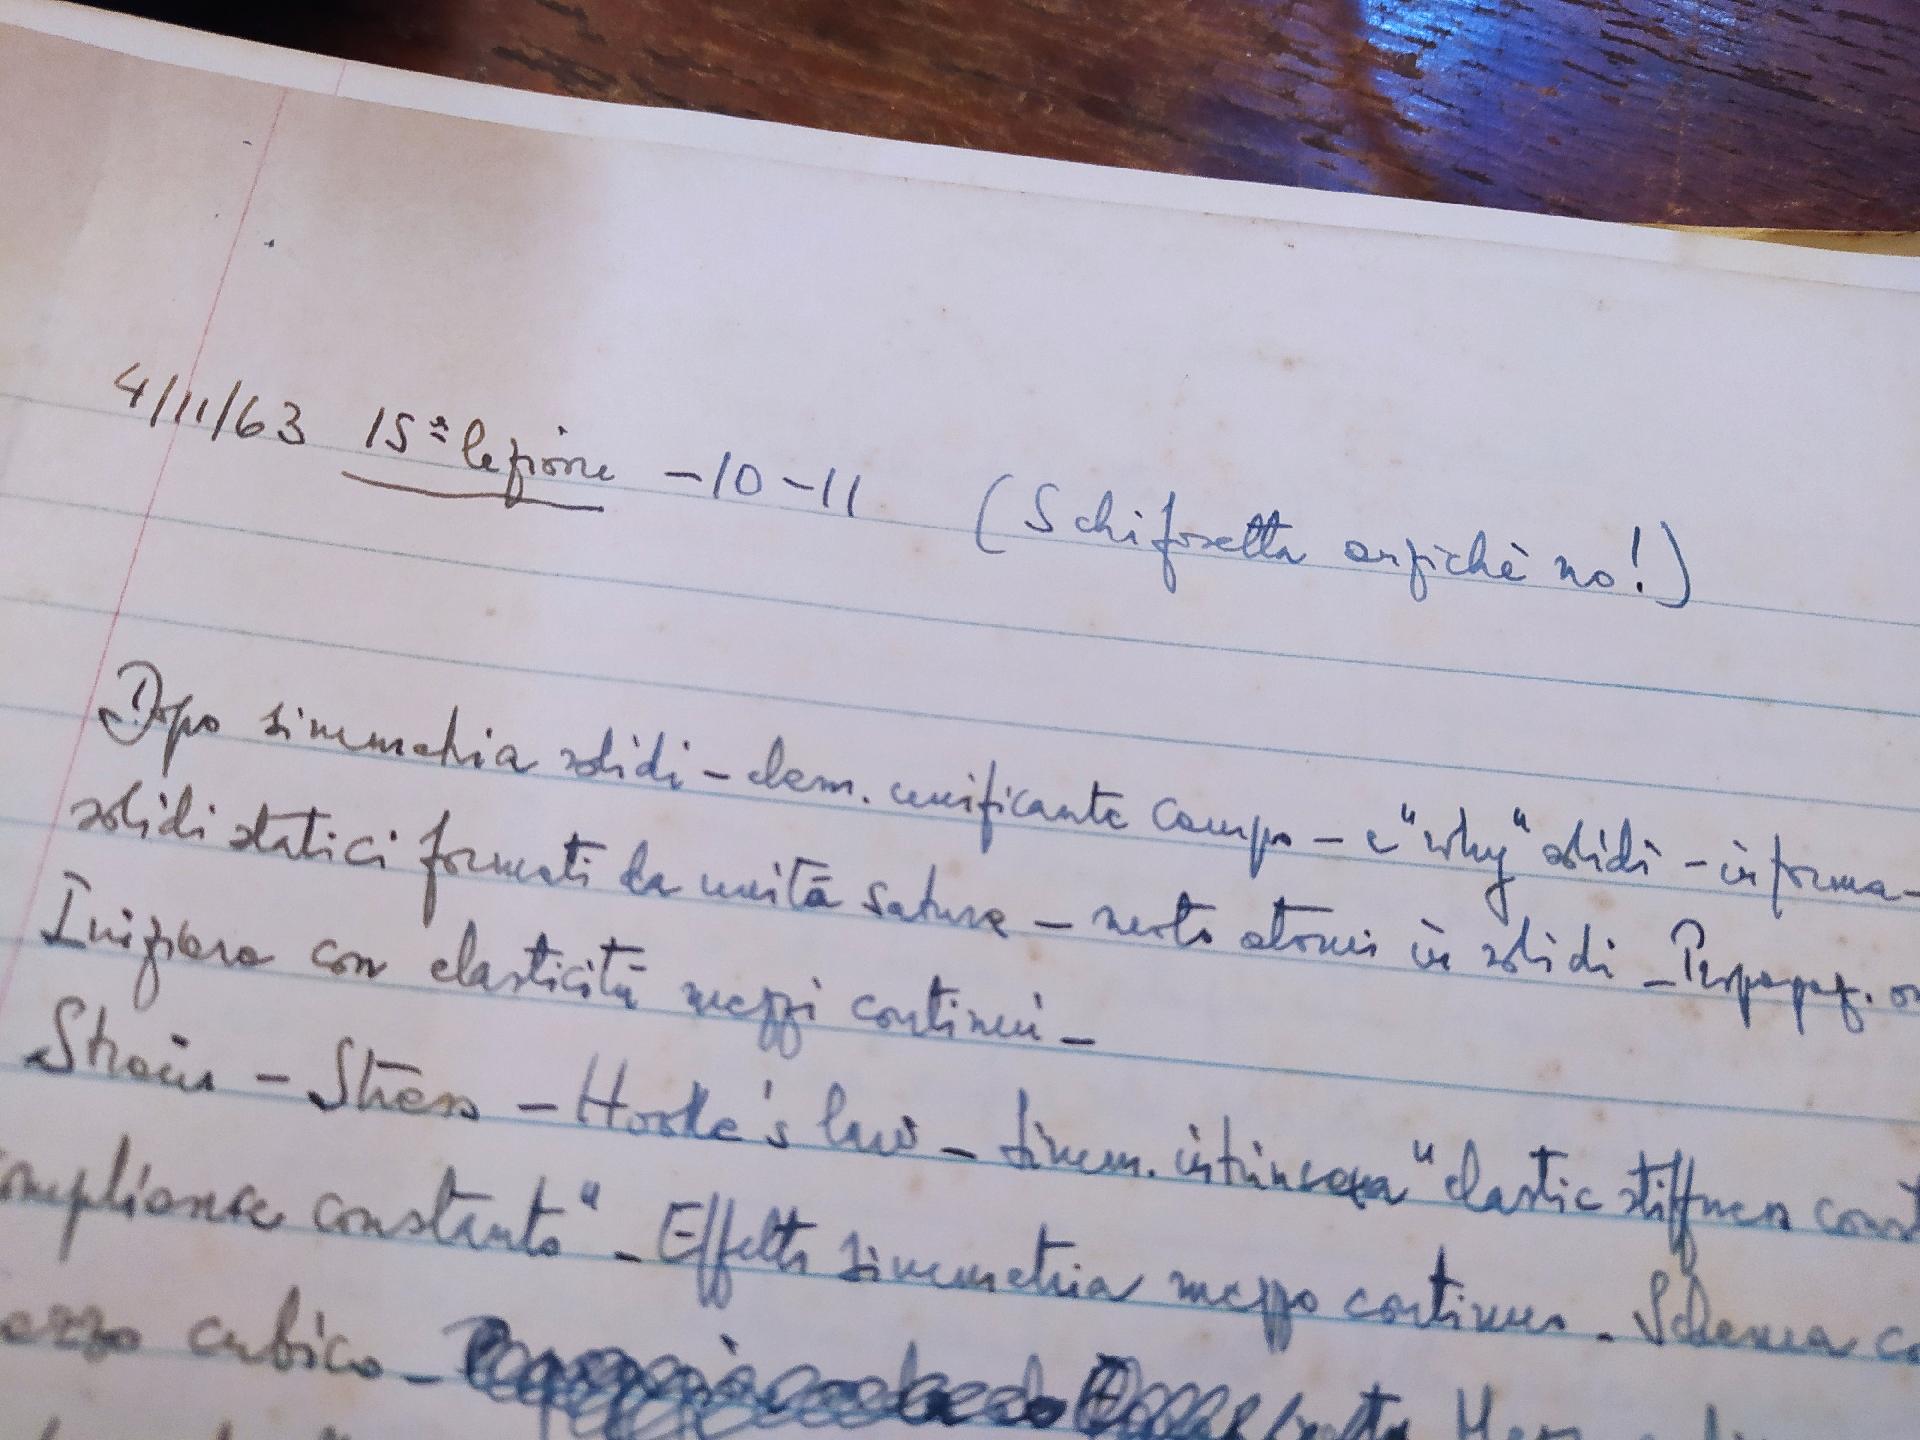 4/11/63 15ª lezione - 10 - 11 (Schifosetta anzichè no!)
Dopo simmetria solidi - elem. unificante campo - e "why" solidi - in forma-
solidi statici formati da unità sature - moto atomi in solidi - Propagaz.
Iniziare con elasticità mezzi continui -
Strain - Stress - Hooke's law - simm. intrinseca "elastic stiffness
constants" - Effetto simmetria mezzo continuo - Schema
cubico -